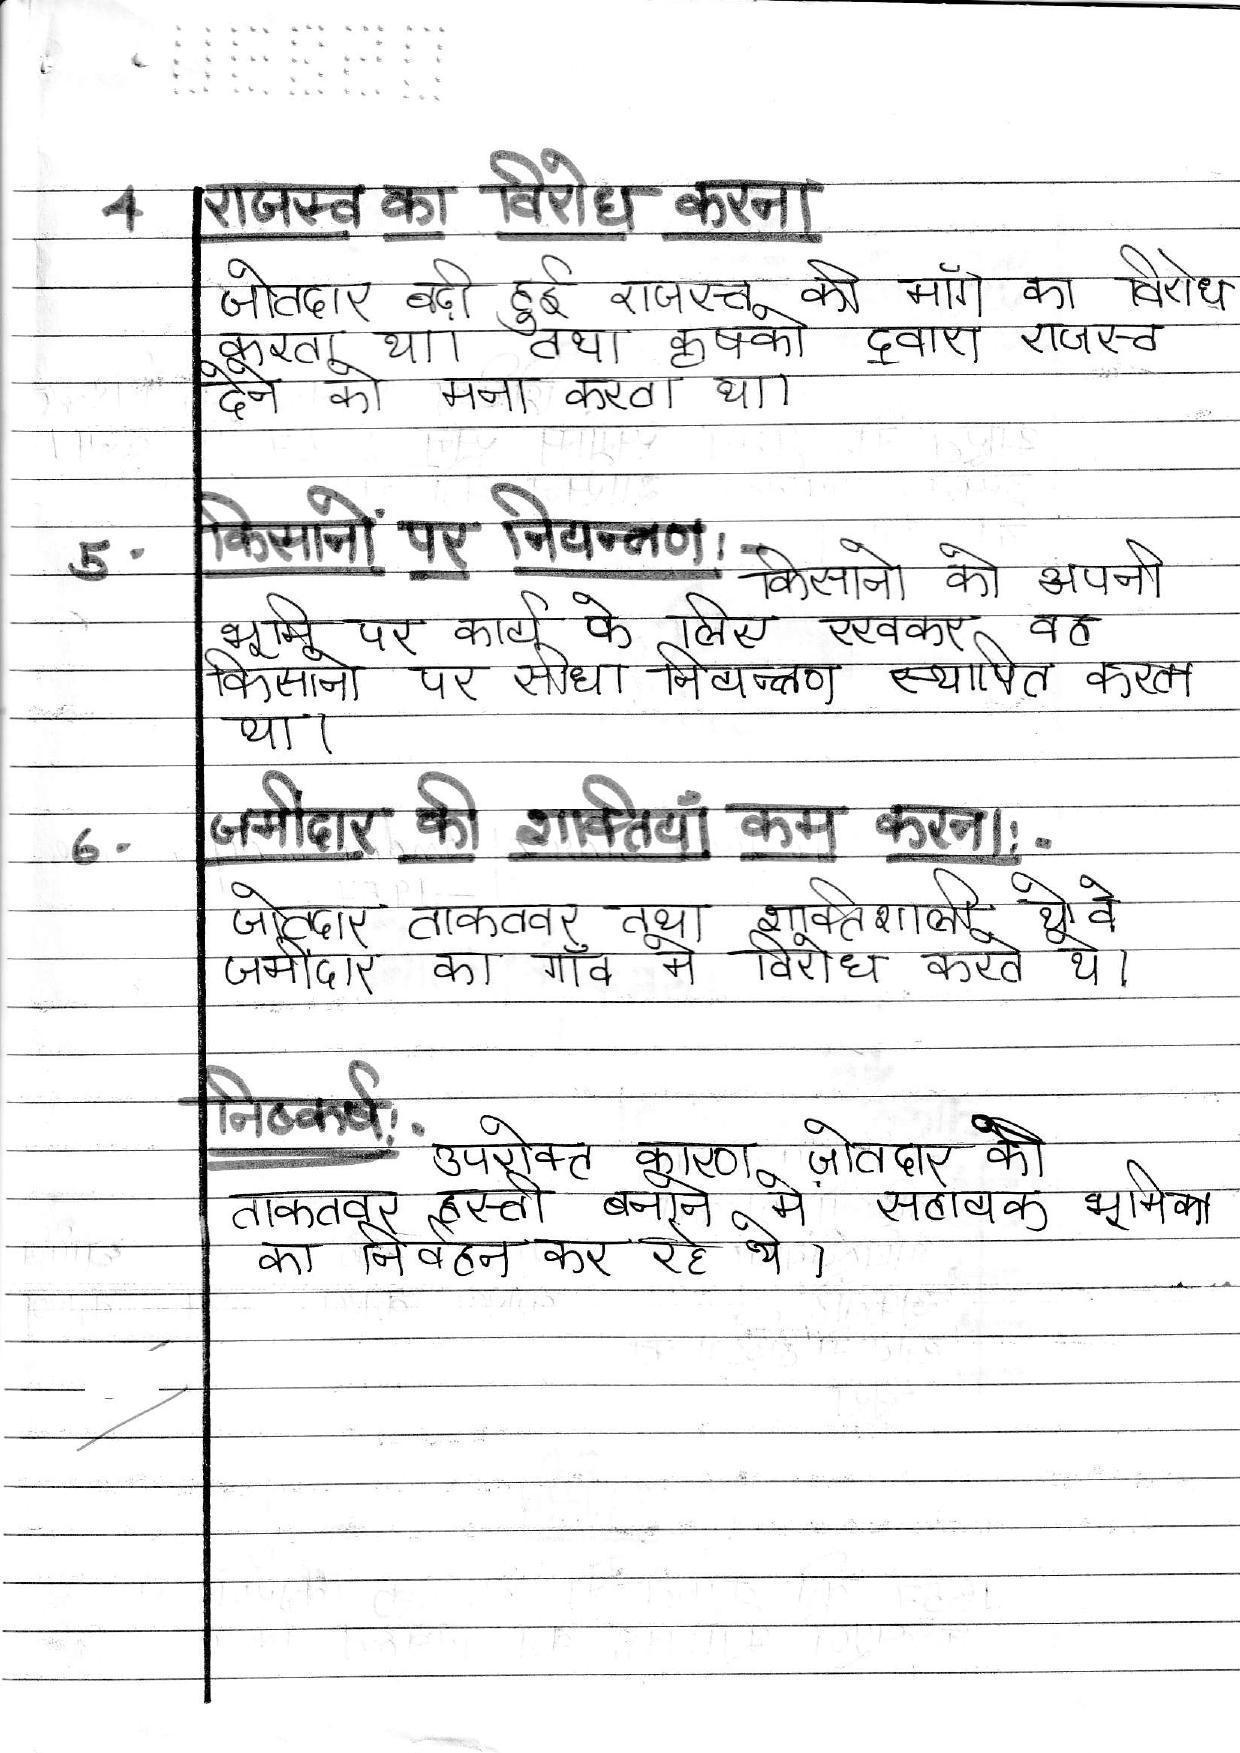 4 राजस्व का विरोध करना
जोतदार बढ़ी हुई राजस्व की माँग का विरोध
करता था। तथा कृषको द्वारा राजस्व
देने को मना करता था।
5. किसानों पर नियन्त्रण:-
किसानो को अपनी
भूमि पर कार्य के लिए रखकर वह
किसानो पर सीधा नियन्त्रण स्थापित करता
था।
6. जमींदार की शक्तियाँ कम करना:-
जोतदार ताकतवर तथा शक्तिशाली थे वे
जमींदार का गाँव मे विरोध करते थे।
निष्कर्ष:-
उपरोक्त कारण जोतदार को
ताकतवर हस्ती बनाने मे सहायक भूमिका
का निर्वहन कर रहे थे।